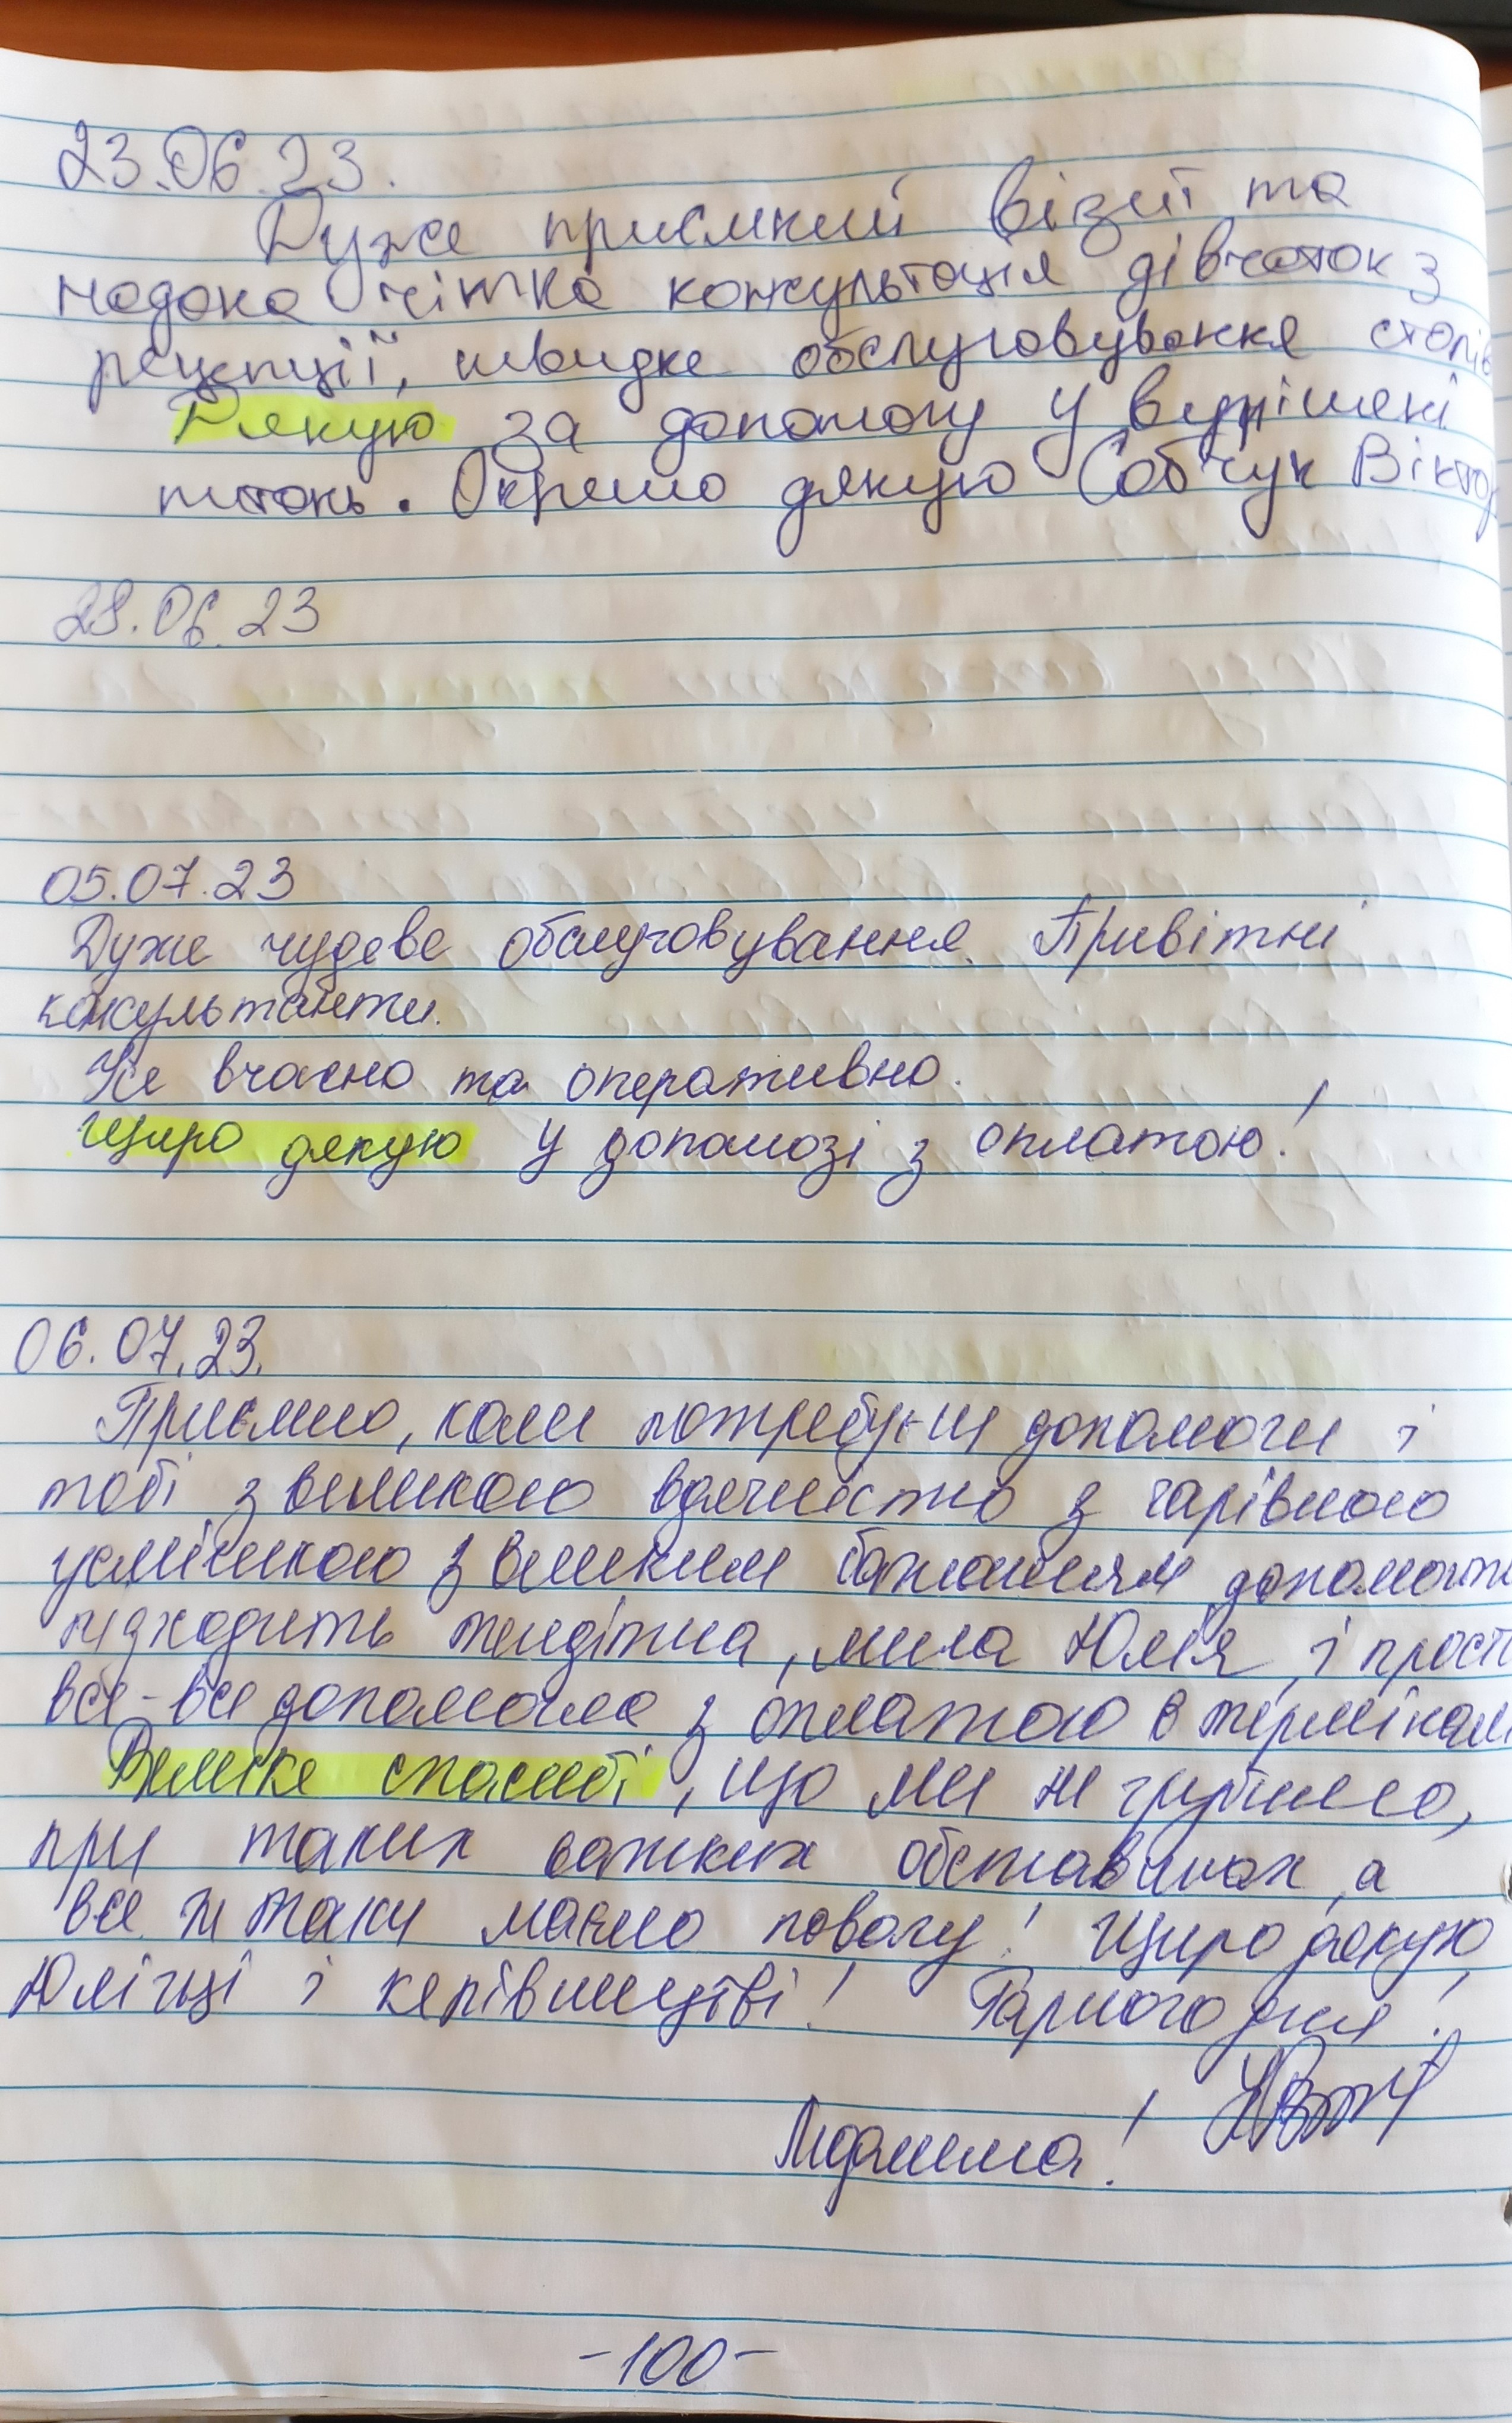 23.06.23.
Дуже приємний візит та
надана чітка консультація дівчаток з
рецепції, швидке обслуговування столів
Дякую за допомогу у вирішені
питань. Окремо дякую Собчук Вікто
28.06.23
05.07.23
Дуже чудове обслуговування. Привітні
консультанти.
Усе вчасно та оперативно.
Щиро дякую у допомозі з оплатою!
06.07.23.
Приємно, коли потребуєш допомоги і
тобі з великою вдячністю з чарівною
усмішкою з великим бажанням допомогти
підходить тендітна, мила Юлія, і прост
все-все допомогла з оплатою в термінал
Велике спасибі, що ми не грубіємо,
при таких важких обставинах, а
все ж таки маємо повагу! Щиро дякую
Юлічці і керівництві! Гарного дня!
Людмила!
-100-